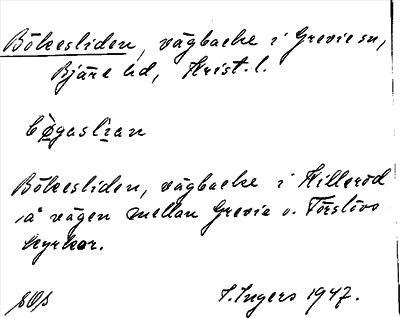 Bökesliden, vägbacke i Grevie sn,
Bjäre hd, Krist. l.
bøgaslian
Bökesliden, vägbacke i Killeröd
å vägen mellan Grevie o. Förslövs
kyrkor.
I. Ingers 1947.